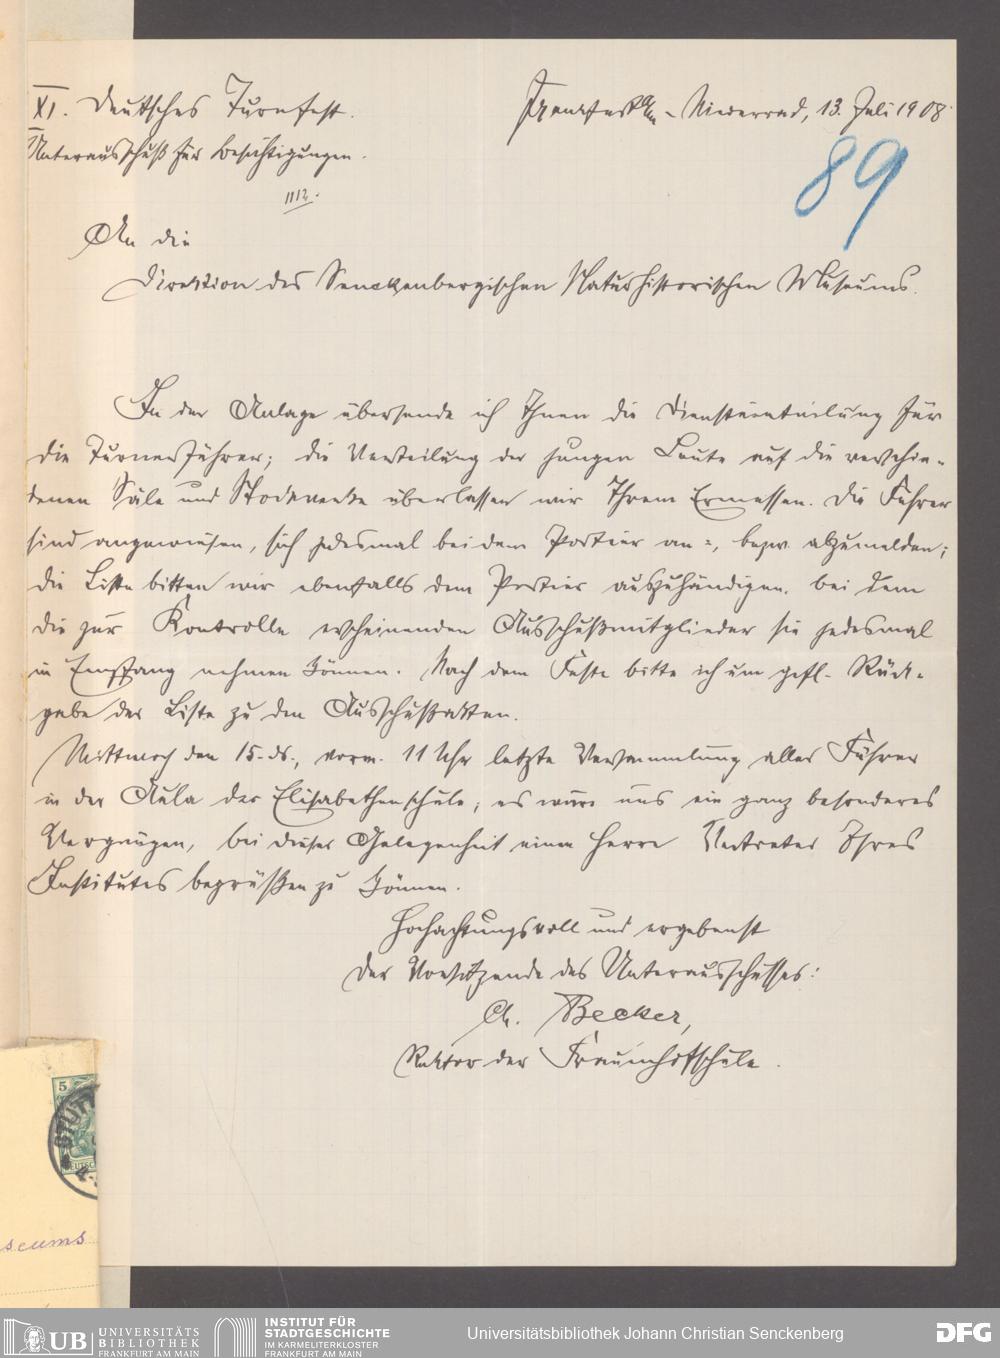 XI. Deutsches Turnfest.
Frankfurt a/m - Niederrad, 13. Juli 1908.
Unterausschuß für Besichtigungen.
89
1112.
An die
Direktion des Senckenbergischen Naturhistorischen Museums.
In der Anlage übersende ich Ihnen die Diensteinteilung für
die Turnerführer; die Verteilung der jungen Leute auf die verschie-
denen Säle und Stockwerke überlassen wir Ihrem Ermessen. Die Führer
sind angewiesen, sich jedesmal bei dem Portier an=, bezw. abzumelden;
die Liste bitten wir ebenfalls dem Portier auszuhändigen, bei dem
die zur Kontrolle erscheinenden Ausschußmitglieder sie jedesmal
in Empfang nehmen können. Nach dem Feste bitte ich um gefl. Rück-
gabe der Liste zu den Ausschußakten.
Mittwoch den 15. ds., vorm. 11 Uhr letzte Versammlung aller Führer
in der Aula der Elisabethenschule; es wäre uns ein ganz besonderes
Vergnügen, bei dieser Gelegenheit einen Herrn Vertreter Ihres
Institutes begrüßen zu können.
Hochachtungsvoll und ergebenst
Der Vorsitzende des Unterausschusses:
Ch. Becker,
Rektor der Frauenhofschule.
5
STUTT
DEUTSC
seums
UB UNIVERSITÄTS
BIBLIOTHEK
FRANKFURT AM MAIN
INSTITUT FÜR
STADTGESCHICHTE
IM KARMELITERKLOSTER
FRANKFURT AM MAIN
Universitätsbibliothek Johann Christian Senckenberg
DFG